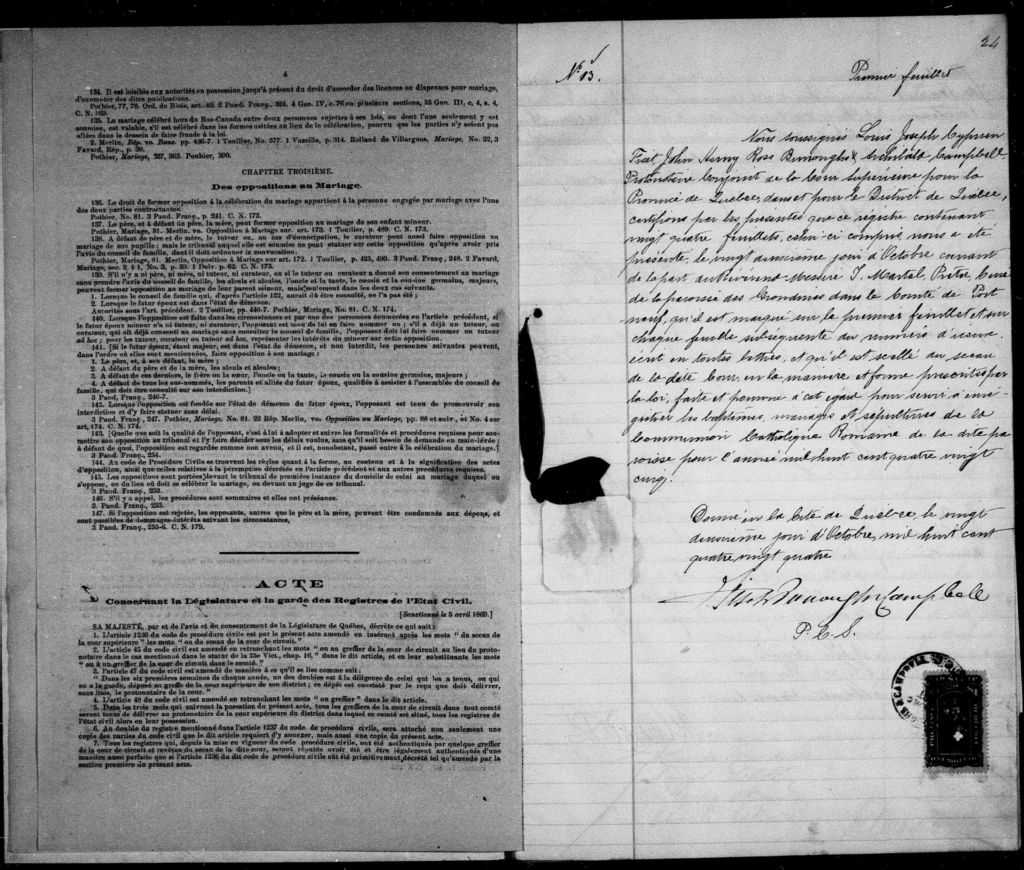 4
134. Il est loisible aux autorités en possession jusqu'à présent du droit d'accorder des licences ou dispenses pour mariage,
d'exempter des dites publications.
Pothier, 77, 78. Ord. de Blois, art. 40. 2 Pand. Franç., 324. 4 Geo. IV, c. 76 en plusieurs sections, 35 Geo. III, c. 4, s. 4,
C. N. 169.
135. Le mariage célébré hors du Bas-Canada entre deux personnes sujettes à ses lois, ou dont l'une seulement y est
soumise, est valable, s'il est célébré dans les formes usitées au lieu de la célébration, pourvu que les parties n'y soient pas
allées dans le dessein de faire fraude à la loi.
2. Merlin, Rép. vo. Bans. pp. 436-7. 1 Toullier, No. 577. 1 Vazille, p. 314. Rolland de Villargues, Mariage, No. 22, 3
Favard, Rép., p. 39.
Pothier, Mariage, 327, 363. Ponhier, 390.
CHAPITRE TROISIÈME.
Des oppositions au Mariage.
136. Le droit de former opposition à la célébration du mariage appartient à la personne engagée par mariage avec l'une
des deux parties contractantes.
Pothier, No. 81. 3 Pand. Franç., p. 241. C. N. 172.
137. Le père, et à défaut du père, la mère, peut former opposition au mariage de son enfant mineur.
Pothier, Mariage, 81. Merlin. vo. Opposition à Mariage sur. art. 173. 1 Toullier, p. 489. C. N. 173.
138. A défaut de père et de mère, le tuteur ou, au cas d'émancipation, le curateur peut aussi faire opposition au
mariage de son pupille ; mais le tribunal auquel elle est soumise ne peut statuer sur cette opposition qu'après avoir pris
l'avis du conseil de famille, dont il doit ordonner la convocation.
Pothier, Mariage, 81. Merlin, Opposition à Mariage sur art. 172. 1 Toullier, p. 425, 490. 3 Pand. Franç., 248. 2 Favard,
Mariage, sec. 2, § 1, No. 3, p. 39. 1 Delv. p. 62. C. N. 175.
139. S'il n'y a ni père, ni mère, ni tuteur, ni curateur, ou si le tuteur ou curateur a donné son consentement au mariage
sans prendre l'avis du conseil de famille, les aïeuls et aïeules, l'oncle et la tante, le cousin et la cousine germains, majeurs,
peuvent former opposition au mariage de leur parent mineur, mais seulement dans les deux cas suivants.
1. Lorsque le conseil de famille qui, d'après l'article 122, aurait dû être consulté, ne l'a pas été ;
2. Lorsque le futur époux est dans l'état de démence.
Autorités sous l'art. précédent. 2 Toullier, pp. 446-7. Pothier, Mariage, No. 81. C. N. 174.
140. Lorsque l'opposition est faite dans les circonstances et par une des personnes énoncées en l'article précédent, si
le futur époux mineur n'a ni tuteur, ni curateur, l'opposant est tenu de lui en faire nommer un ; s'il a déjà un tuteur, ou
curateur, qui ait déjà consenti au mariage sans consulter le conseil de famille, l'opposant doit lui faire nommer un tuteur
ad hoc ; pour les tuteur, curateur ou tuteur ad hoc, représenter les intérêts du mineur sur cette opposition.
141. [Si le futur époux, étant majeur, est dans l'état de démence, et non interdit, les personnes suivantes peuvent,
dans l'ordre où elles sont mentionnées, faire opposition à son mariage :
1. Le père, et, à son défaut, la mère ;
2. A défaut du père et de la mère, les aïeuls et aïeules ;
3. A défaut de ces derniers, le frère ou la sœur, l'oncle ou la tante, le cousin ou la cousine germains, majeurs ;
4. A défaut de tous les sus-nommés, les parents et alliés du futur époux, qualifiés à assister à l'assemblée du conseil de
famille, qui doit être consulté sur son interdiction.]
3 Pand. Franç., 246-7.
142. Lorsque l'opposition est fondée sur l'état de démence du futur époux, l'opposant est tenu de promouvoir son
interdiction et d'y faire statuer sans délai.
3 Pand. Franç., 247. Pothier, Mariage, No. 81. 22 Rép. Merlin, vo. Opposition au Mariage, pp. 88 et suiv., et No. 4 sur
art. 174. C. N. 174.
143. [Quelque soit la qualité de l'opposant, c'est à lui à adopter et suivre les formalités et procédures requises pour sou-
mettre son opposition au tribunal et l'y faire décider sous les délais voulus, sans qu'il soit besoin de demande en main-levée ;
à défaut de quoi, l'opposition est regardée comme non avenu, et il est, nonobstant, passé outre à la célébration du mariage.]
3 Pand. Franç., 254.
144. Au code de Procédure Civile se trouvent les règles quant à la forme, au contenu et à la signification des actes
d'opposition, ainsi que celles relatives à la péremption décrétée en l'article précédent et aux autres procédures requises.
145. Les oppositions sont portées devant le tribunal de première instance du domicile de celui au mariage duquel on
s'oppose, ou du lieu où doit se célébrer le mariage, ou devant un juge de ce tribunal.
3 Pand. Franç., 253.
146. S'il y a appel, les procédures sont sommaires et elles ont préséance.
3 Pand. Franç., 253.
147. Si l'opposition est rejetée, les opposants, autres que le père et la mère, peuvent être condamnés aux dépens, et
sont passibles de dommages-intérêts suivant les circonstances,
3 Pand. Franç., 253-4. C. N. 179.
ACTE
Concernant la Législature et la garde des Registres de l'Etat Civil.
[Sanctionné le 5 avril 1869.]
SA MAJESTÉ, par et de l'avis et du consentement de la Législature de Québec, décrète ce qui suit :
1. L'article 1236 du code de procédure civile est par le présent acte amendé en insérant après les mots " du sceau de
la cour supérieure " les mots " ou du sceau de la cour de circuit. "
2. L'article 45 du code civil est amendé en retranchant les mots " ou au greffier de la cour de circuit au lieu du proto-
notaire dans le cas mentionné dans le statut de la 25e Vict., chap. 16, " dans le dit article, et en leur substituants les mots
" ou à un greffier de la cour de circuit dans le comté. "
3. l'article 47 du code civil est amendé de manière à ce qu'il se lise comme suit :
" Dans les six premières semaines de chaque année, un des doubles est à la diligence de celui qui les a tenus, ou qui
en a la garde, déposé au greffe de la cour supérieure de son district ; ce dépôt est constaté par le reçu que doit délivrer,
sans frais, le protonotaire de la cour. "
4. L'article 48 du code civil est amendé en retranchant les mots " ou greffier " dans le dit article.
5. Dans les trois mois qui suivront la passation du présent acte, tous les greffiers de la cour de circuit dans tout comté
seront tenus de délivrer au protonotaire de la cour supérieure du district dans lequel ce comté est situé, tous les registres de
l'état civil alors en leur possession.
6. Au double du registre mentionné dans l'article 1237 du code de procédure civile, sera attaché non seulement une
copie des parties du code civil que le dit article requiert d'y annexer, mais aussi une copie du présent acte.
7. Tous les registres qui, depuis la mise en vigueur du code procédure civile, ont été authentiqués par quelque greffier
de la cour de circuit et revêtus du sceau de la dite cour, seront réputés avoir été et être légalement authentiqués d'une
manière aussi parfaite que si l'article 1236 du dit code de procédure civile eût été primitivement décrété tel qu'amendé par la
section première du présent acte.
24
No 13.
Premier feuillet
Nous soussignés Louis Joseph Cyprien
Fiset, John Henry Ross Burroughs & Archibald Campbell
Protonotaire Conjoint de la Cour Supérieure pour la
Province de Québec, dans et pour le District de Québec,
certifions par les présentes que ce registre contenant
vingt quatre feuillets, celui-ci compris, nous a été
présenté, le vingt deuxième jour d'Octobre courant
de la part du Révérend Messire J. Martel, Prêtre, Curé
de la paroisse des Grondines dans le Comté de Port
neuf, qu'il est marqué sur le premier feuillet et sur
chaque feuille subséquente du numéro d'icelui
écrit en toutes lettres, et qu'il est scellé du sceau
de la dite Cour, en la manière et forme prescrites par
la loi, faite et pourvue à cet égard pour servir à enre
gistrer les baptêmes, mariages et sépultures de la
Communion Catholique Romaine de la dite pa
roisse pour l'année mil huit cent quatre vingt
cinq.
Donné en la Cité de Québec, le vingt
deuxième jour d'Octobre, mil huit cent
quatre vingt quatre
Fiset Burroughs Campbell
P. C. S.